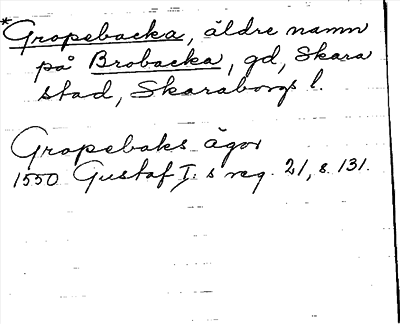 *Gropebacka, äldre namn
på Brobacka, gd, Skara
stad, Skaraborgs l.
Gropebaks ägor
1550 Gustaf I:s reg. 21, s. 131.